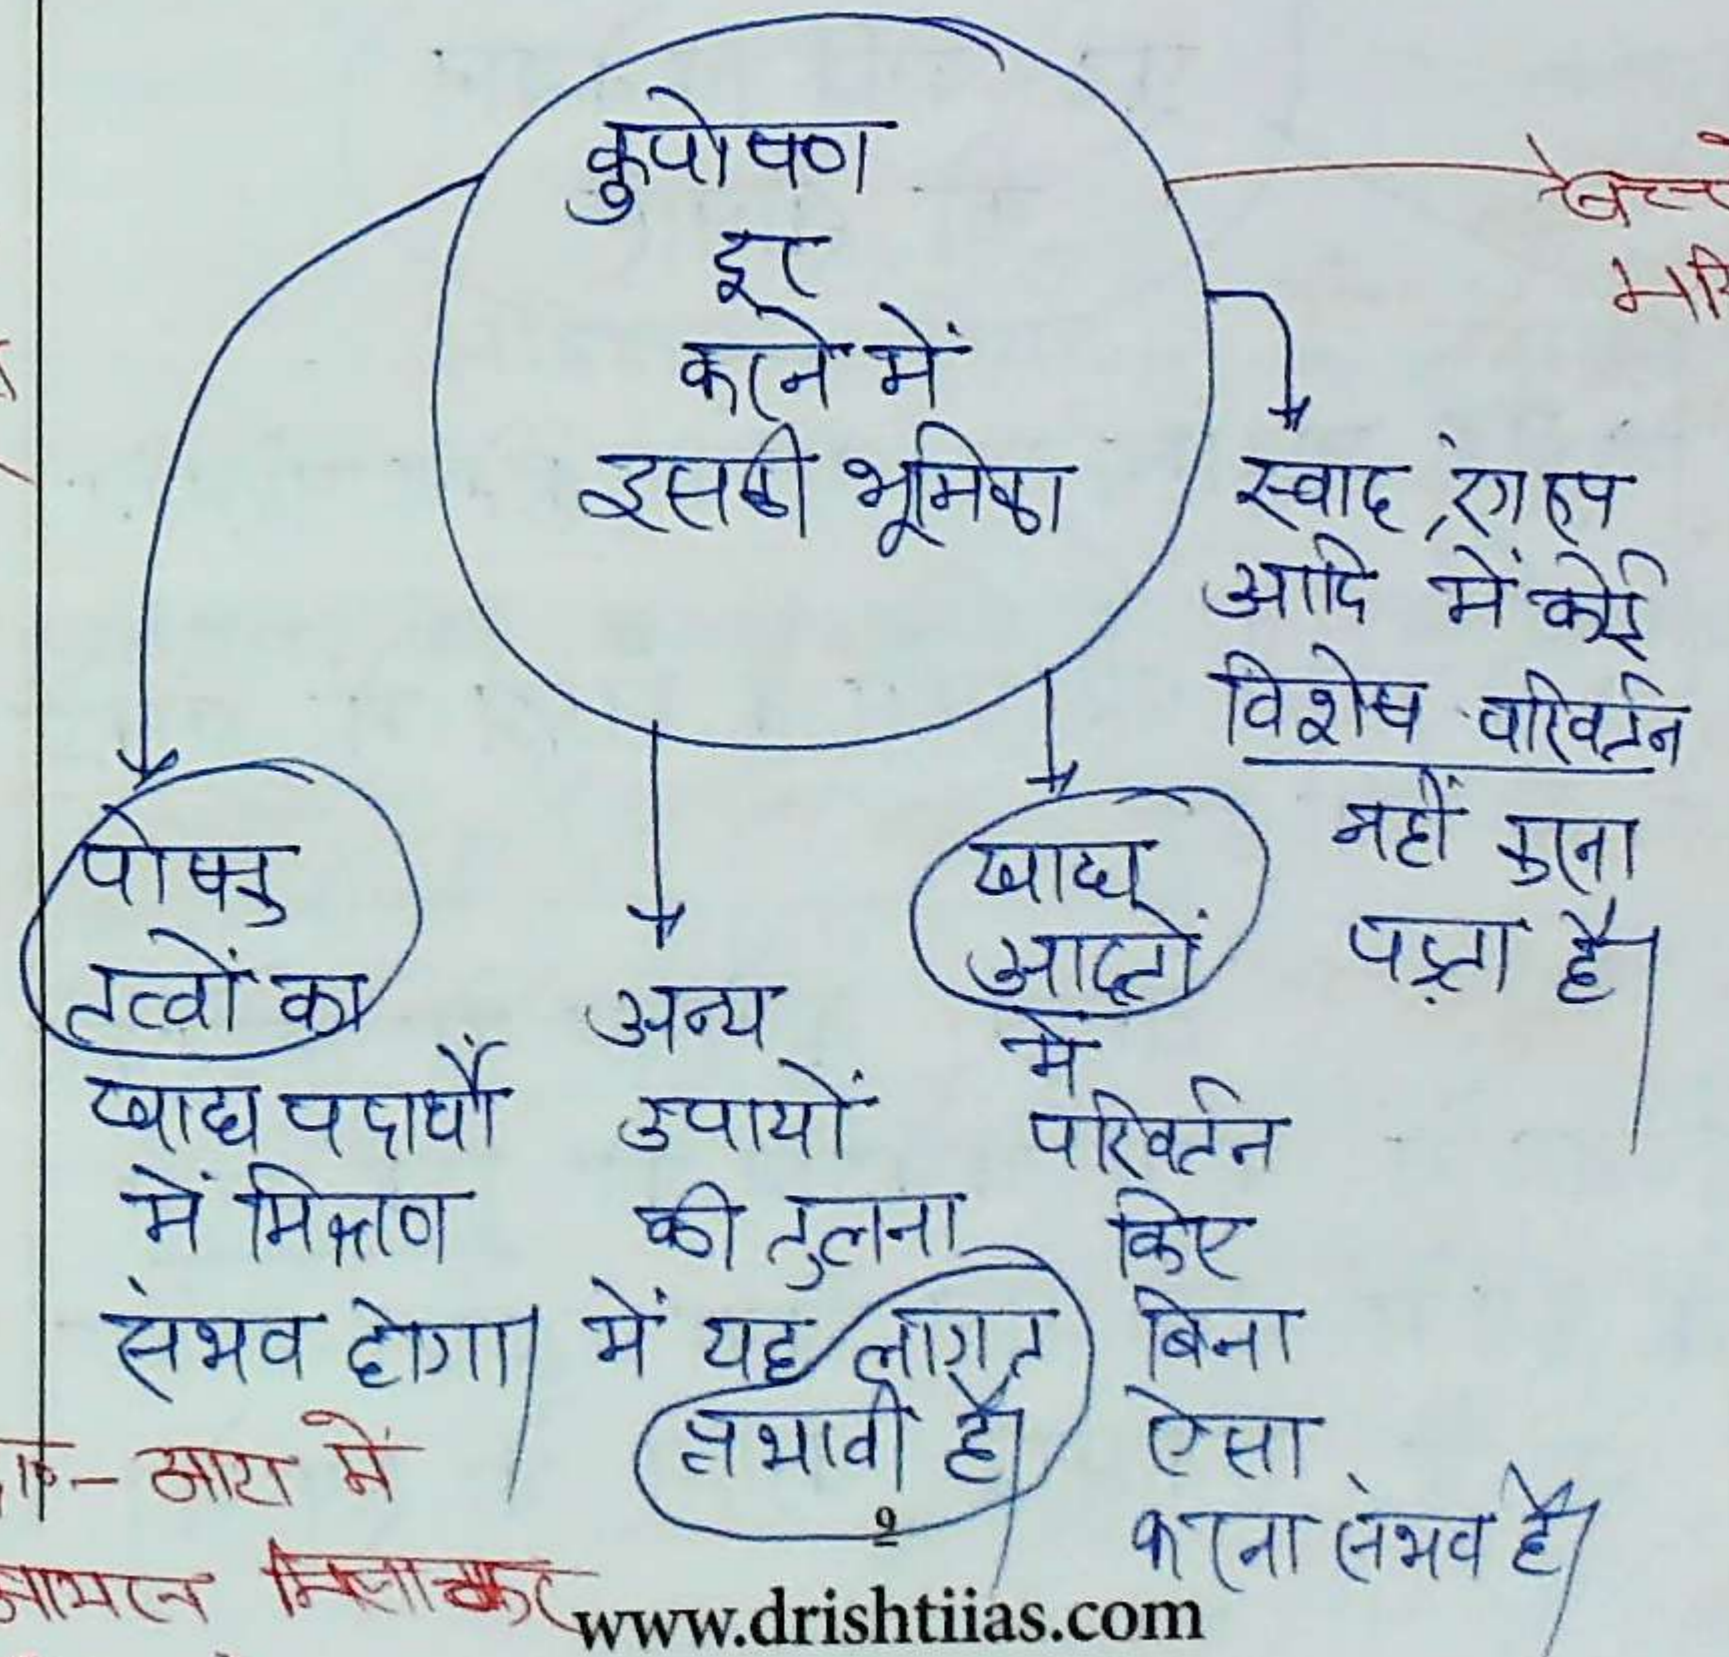 कुपोषण
दूर
करने में
इसकी भूमिका
पोषक
तत्वों का
खाद्य पदार्थों
में मिश्रण
संभव होगा।
अन्य
उपायों
की तुलना
में यह लागत
प्रभावी है।
खाद्य
आदतों
में
परिवर्तन
किए
बिना
ऐसा
करना संभव है।
स्वाद, रंग रूप
आदि में कोई
विशेष परिवर्तन
नहीं करना
पड़ता है।
आटा में
मिलाकर
9
www.drishtiias.com